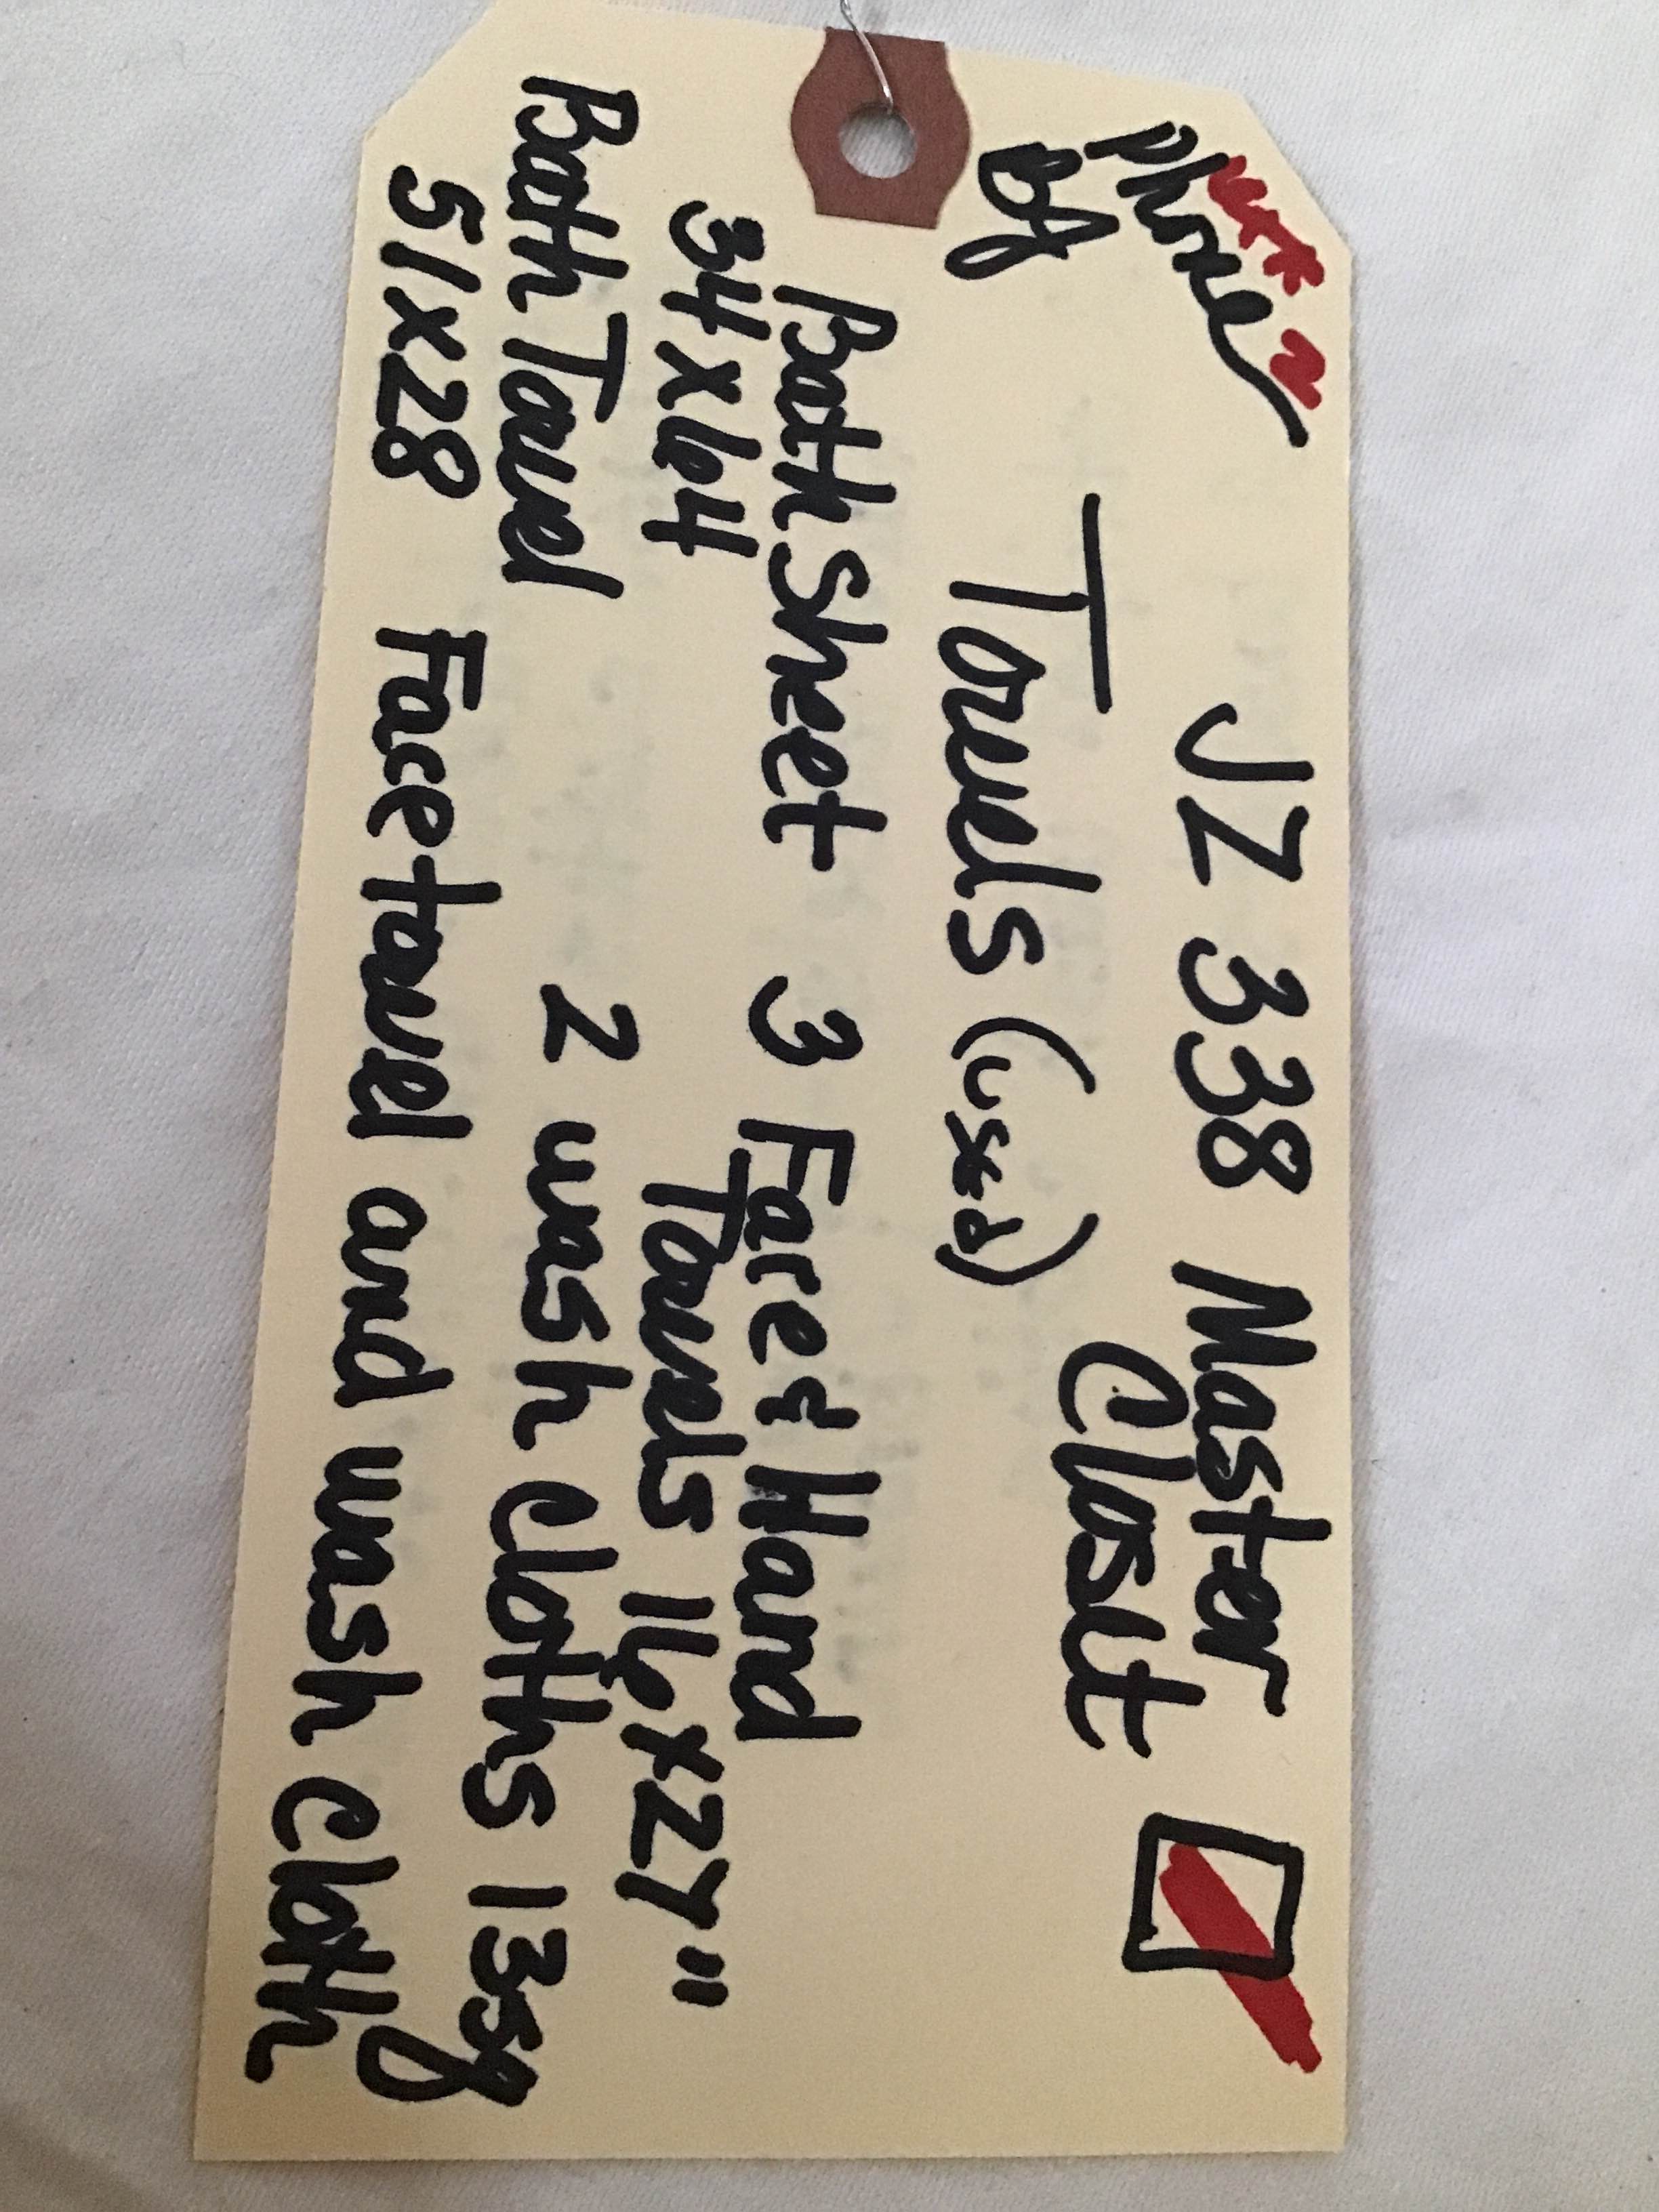 Phone
JZ 338 Master
By
Closit
Towels (used)
Bath Sheet 3 Face & Hand
34 x 64 Towels 16 x 27"
Bath Towel 2 wash cloths 13sq
51x28 Face towel and wash cloth